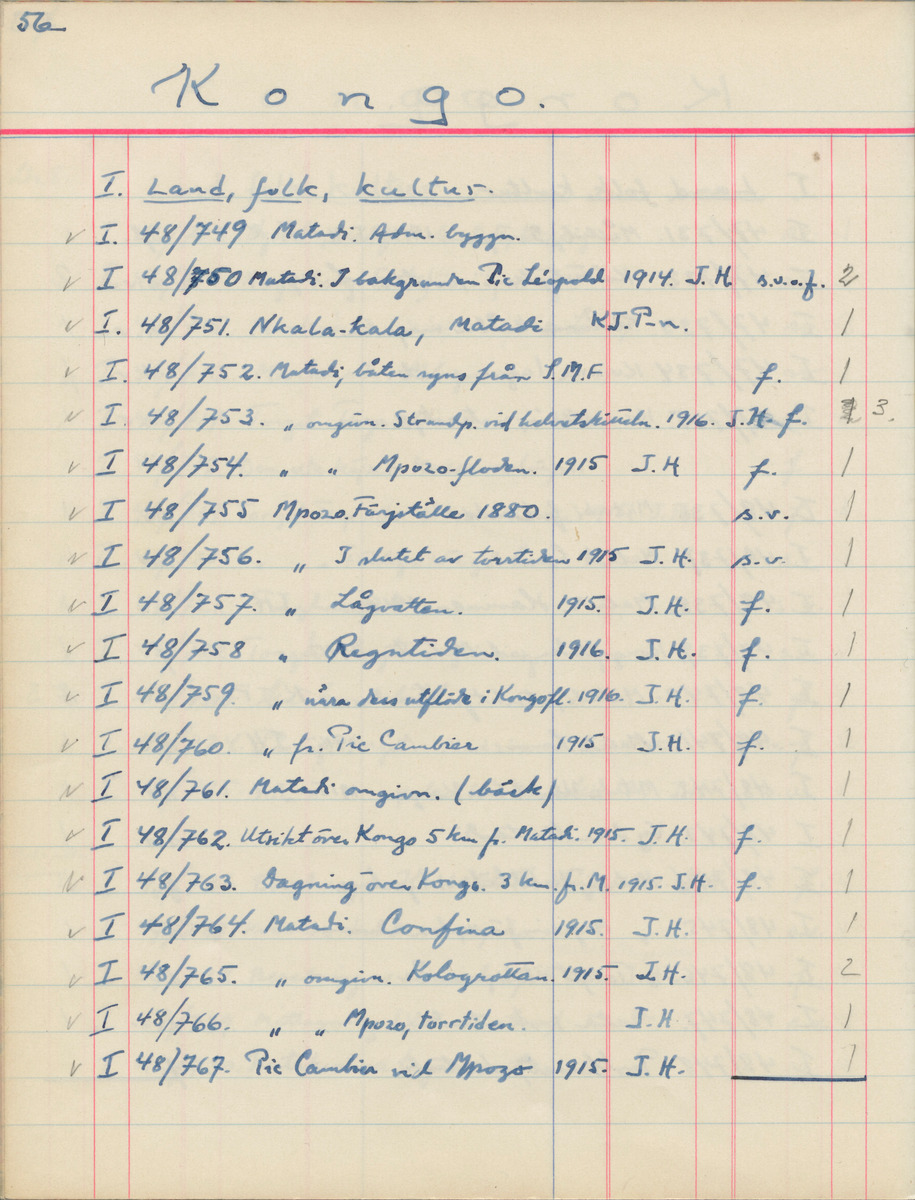 56
Kongo.
I. Land, folk, kultur.
v I. 48/749 Matadi. Adm. byggn.
v I 48/750 Matadi. I bakgrunden Pic Léopold 1914. J.H s.v.o.f. 2
v I. 48/751. Nkala-kala, Matadi K.J.P-n. 1
v I. 48/752. Matadi, båten syns från S.M.F f. 1
v I. 48/753. „ omgivn. Strandp. vid helvetskitteln. 1916. J.H. f. 3.
v I 48/754. „ „ Mpozo-floden. 1915 J.H f. 1
v I 48/755 Mpozo. Färjställe 1880. s.v. 1
v I 48/756. „ I slutet av torrtiden 1915 J.H. s.v. 1
v I 48/757. „ Lågvatten. 1915. J.H. f. 1
v I 48/758 „ Regntiden. 1916. J.H. f. 1
v I 48/759. „ nära dess utflöde i Kongofl. 1916. J.H. f. 1
v I 48/760. „ fr. Pic Cambier 1915 J.H. f. 1
v I 48/761. Matadi omgivn. (bäck) 1
v I 48/762. Utsikt över Kongo 5 km fr. Matadi. 1915. J.H. f. 1
v I 48/763. Dagning över Kongo. 3 km. fr. M. 1915. J.H. f. 1
v I 48/764. Matadi. Confina 1915. J.H. 1
v I 48/765. „ omgivn. Kologrottan. 1915. J.H. 2
v I 48/766. „ „ Mpozo, torrtiden. J.H. 1
v I 48/767. Pic Cambier vid Mpozo 1915. J.H. 1